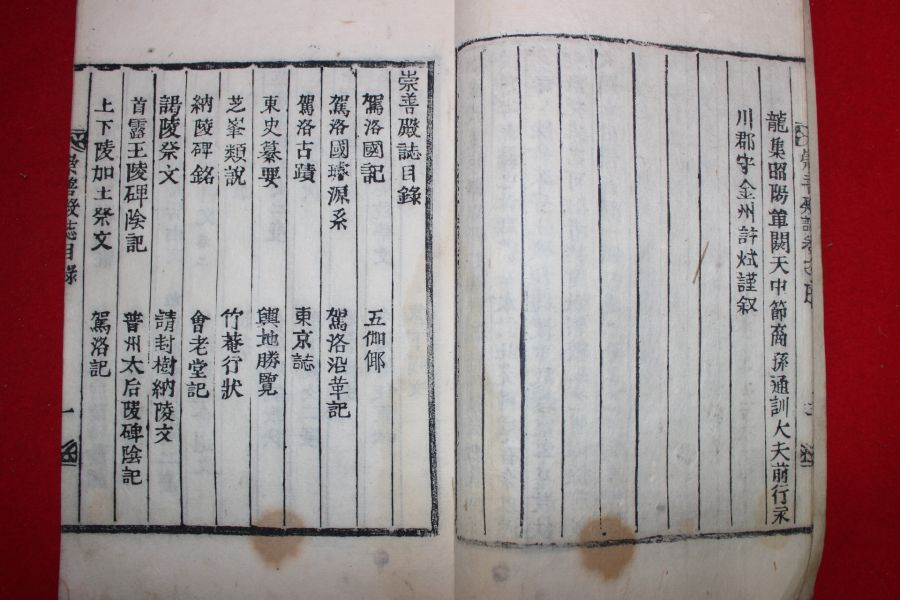 龍集昭陽單閼天中節裔孫通訓大夫前行永
川郡守金州許烒謹叙
崇善殿誌目錄
駕洛國記 五伽倻
駕洛國璿源系 駕洛沿革記
駕洛古蹟 東京誌
東史纂要 輿地勝覽
芝峯類說 竹菴行狀
納陵碑銘 會老堂記
謁陵祭文 請封樹納陵文
首露王陵碑陰記 普州太后陵碑陰記
上下陵加土祭文 駕洛記
崇善殿誌目錄 一